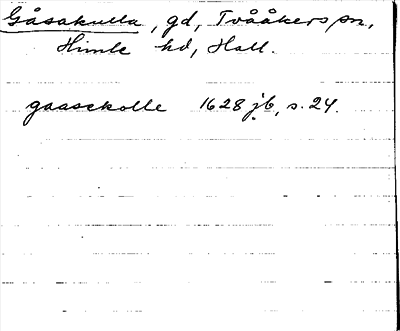 Gåsakulla, gd, Tvååkers sn,
Himle hd, Hall.
gaasekolle 1628 jb, s. 24.